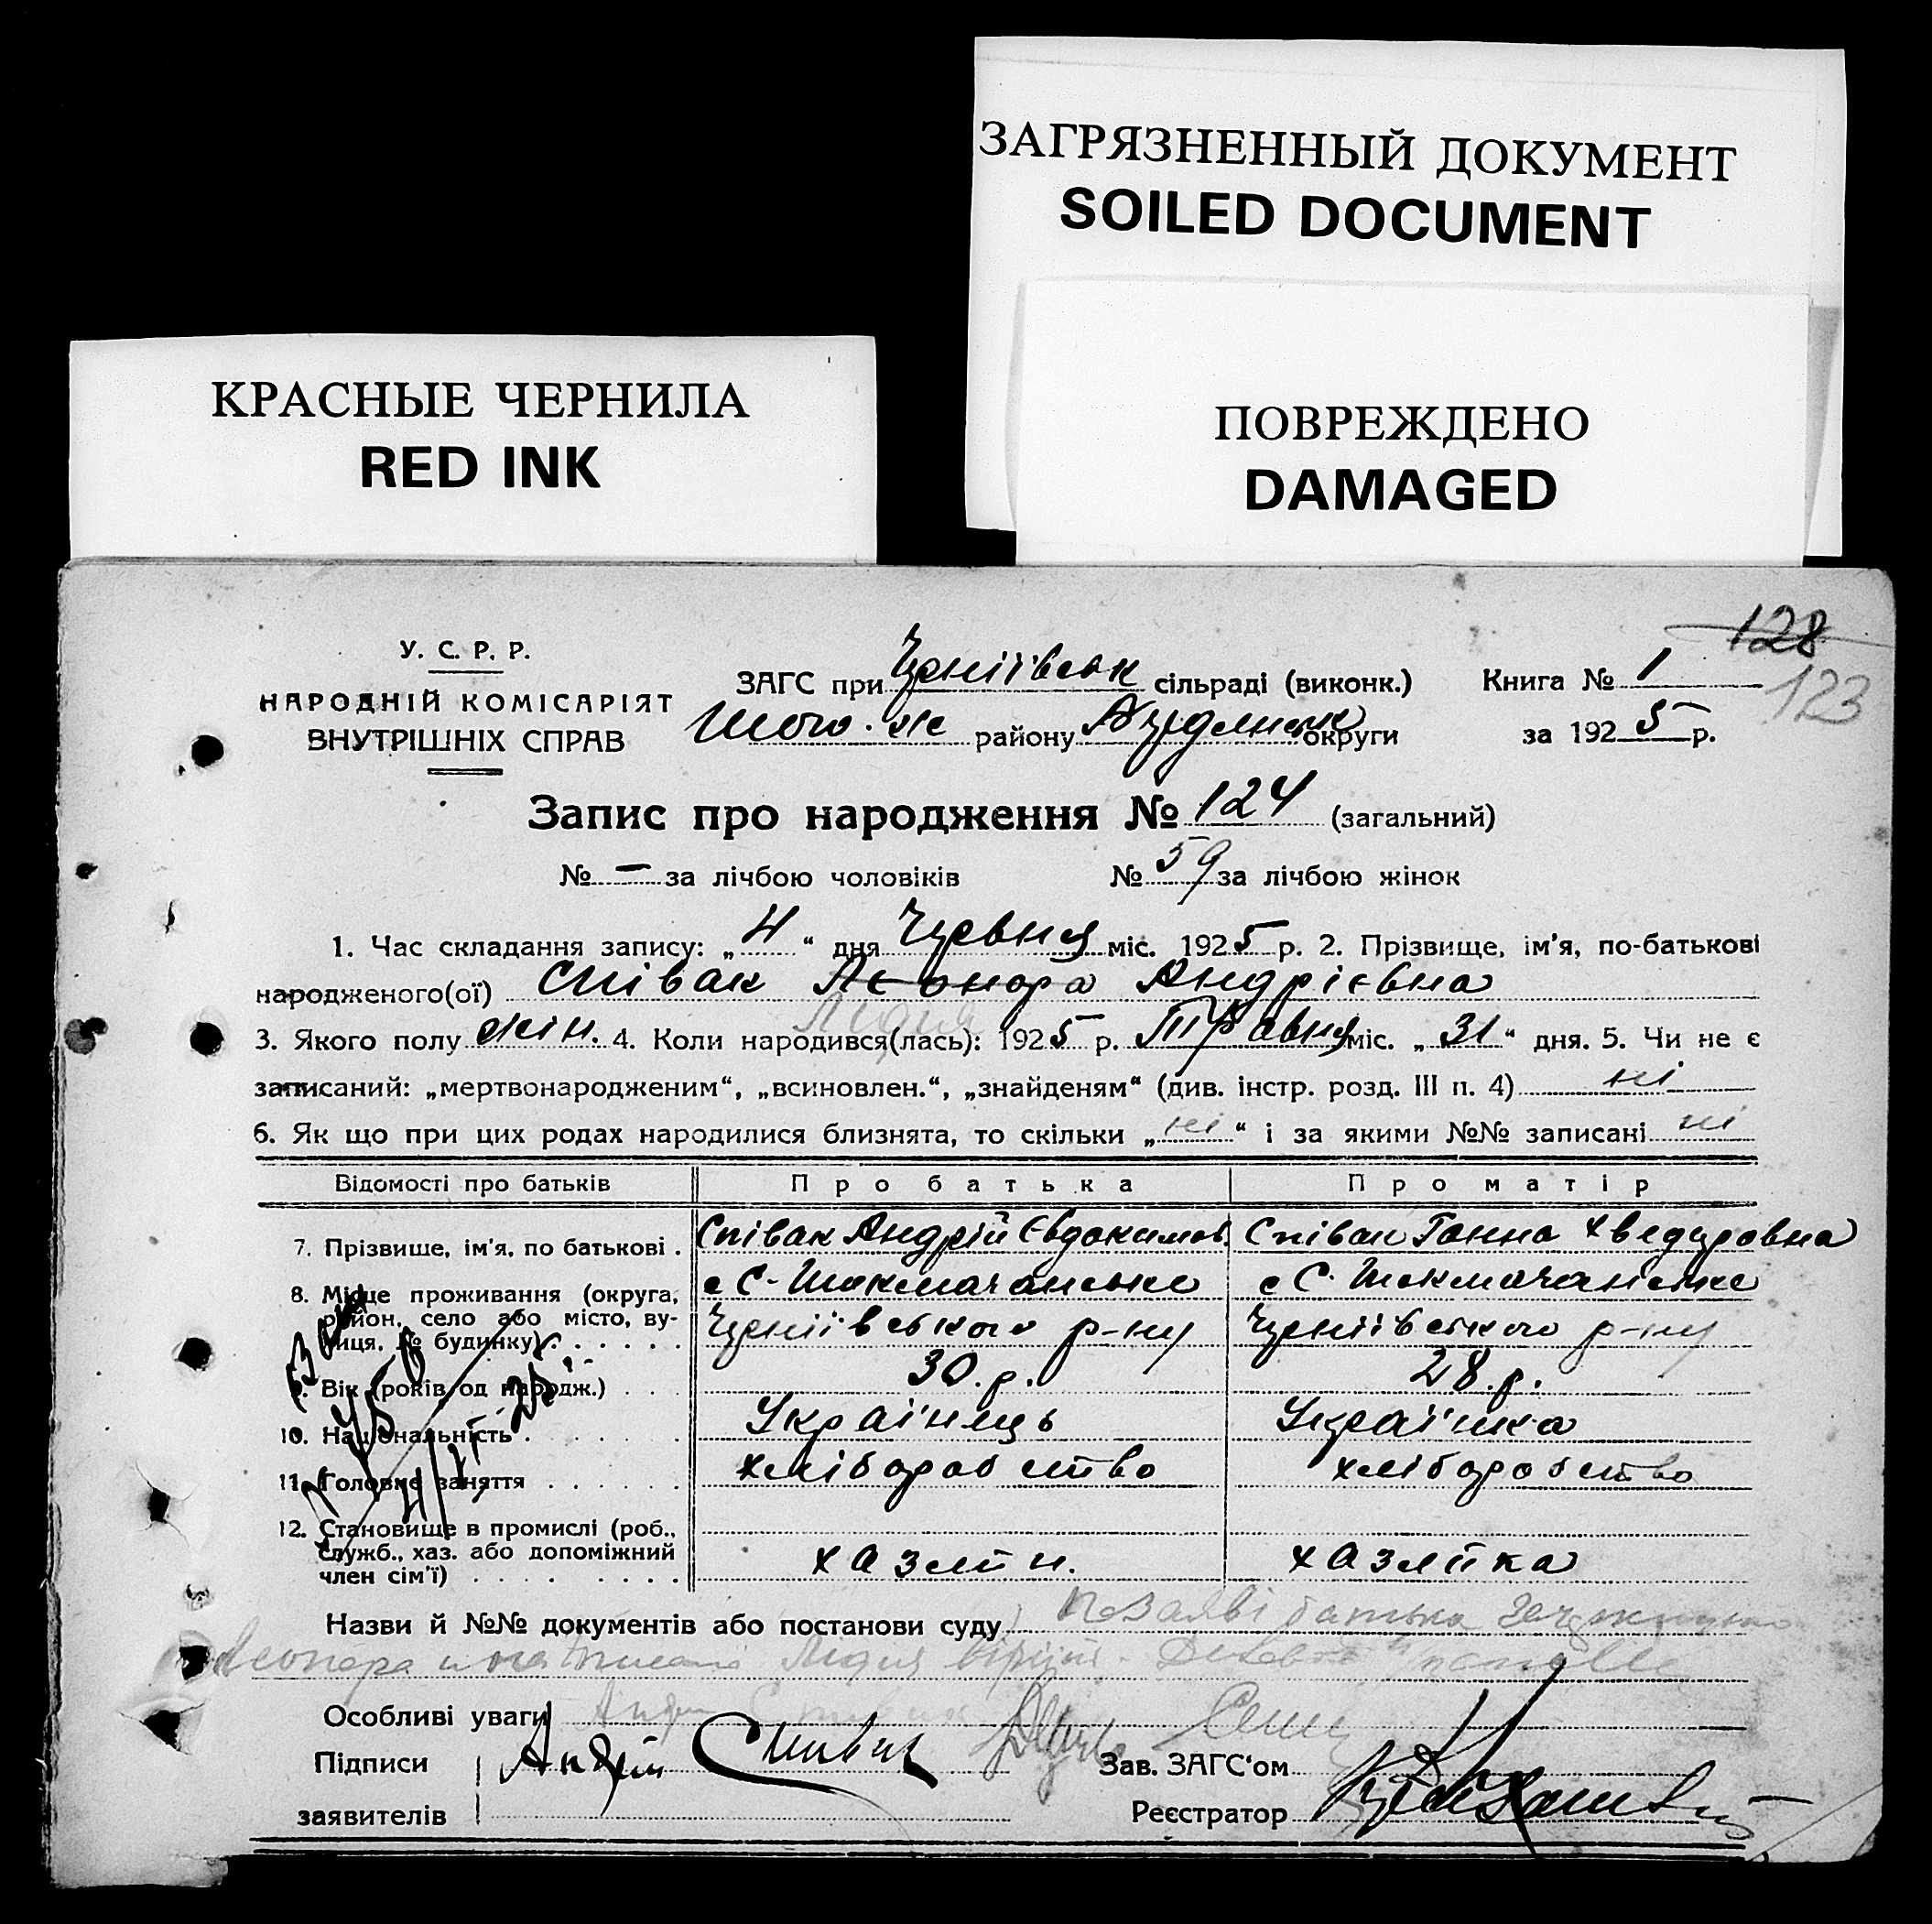 ЗАГРЯЗНЕННЫЙ ДОКУМЕНТ
SOILED DOCUMENT
КРАСНЫЕ ЧЕРНИЛА
RED INK
ПОВРЕЖДЕНО
DAMAGED
128
123
У. С. Р. Р.
НАРОДНІЙ КОМІСАРІЯТ
ВНУТРІШНІХ СПРАВ
ЗАГС при сільраді (виконк.) Книга № 1
району округи за 1925 р.
Запис про народження № 124 (загальний)
№ — за лічбою чоловіків № 59 за лічбою жінок
1. Час складання запису: „4“ дня Червня міс. 1925 р. 2. Прізвище, ім'я, по-батькові
народженого(ої) Співак Леонора Андрієвна
Лідия
3. Якого полу жін. 4. Коли народився(лась): 1925 р. Травня міс. „31“ дня. 5. Чи не є
записаний: „мертвонародженим“, „всиновлен.“, „знайденям“ (див. інстр. розд. III п. 4) ні
6. Як що при цих родах народилися близнята, то скільки „ні“ і за якими №№ записані ні
Відомості про батьків Про батька Про матір
7. Прізвище, ім'я, по батькові . Співак Андрій Євдокимов. Співак Ганна Хведоровна
8. Місце проживання (округа, район, село або місто, вулиця, № будинку) . . . . . .
р-ну р-ну
9. Вік (років од народж.) . . . 30 р. 28 р.
10. Національність . . . . . . Українець Українка
11. Головне заняття . . . . . . хліборобство хліборобство
12. Становище в промислі (роб., служб., хаз. або допоміжний член сім'ї) . . . . . . хазяїн. хазяйка
Назви й №№ документів або постанови суду По заяві батька
Леонора Лідия
Особливі уваги
Підписи Андрій Співак Зав. ЗАГС'ом
заявителів Реєстратор